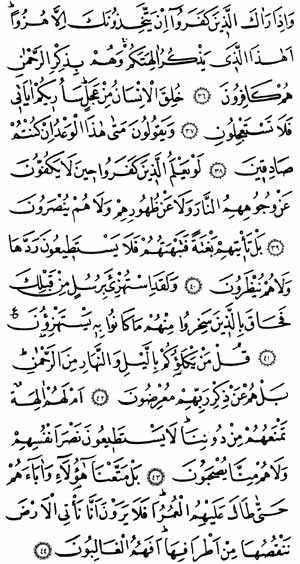 وَاِذَا رَاٰكَ الَّذ۪ينَ كَفَرُٓوا اِنْ يَتَّخِذُونَكَ اِلَّا هُزُواًۜ
اَهٰذَا الَّذ۪ي يَذْكُرُ اٰلِهَتَكُمْۚ وَهُمْ بِذِكْرِ الرَّحْمٰنِ
هُمْ كَافِرُونَ ﴿٣٦﴾ خُلِقَ الْاِنْسَانُ مِنْ عَجَلٍۜ سَاُر۪يكُمْ اٰيَات۪ي
فَلَا تَسْتَعْجِلُونِ ﴿٣٧﴾ وَيَقُولُونَ مَتٰى هٰذَا الْوَعْدُ اِنْ كُنْتُمْ
صَادِق۪ينَ ﴿٣٨﴾ لَوْ يَعْلَمُ الَّذ۪ينَ كَفَرُوا ح۪ينَ لَا يَكُفُّونَ
عَنْ وُجُوهِهِمُ النَّارَ وَلَا عَنْ ظُهُورِهِمْ وَلَا هُمْ يُنْصَرُونَ
﴿٣٩﴾ بَلْ تَأْت۪يهِمْ بَغْتَةً فَتَبْهَتُهُمْ فَلَا يَسْتَط۪يعُونَ رَدَّهَا
وَلَا هُمْ يُنْظَرُونَ ﴿٤٠﴾ وَلَقَدِ اسْتُهْزِئَ بِرُسُلٍ مِنْ قَبْلِكَ
فَحَاقَ بِالَّذ۪ينَ سَخِرُوا مِنْهُمْ مَا كَانُوا بِه۪ يَسْتَهْزِؤُ۫نَ۟ ع
﴿٤١﴾ قُلْ مَنْ يَكْلَؤُ۬كُمْ بِالَّيْلِ وَالنَّهَارِ مِنَ الرَّحْمٰنِۜ
بَلْ هُمْ عَنْ ذِكْرِ رَبِّهِمْ مُعْرِضُونَ ﴿٤٢﴾ اَمْ لَهُمْ اٰلِهَةٌ
تَمْنَعُهُمْ مِنْ دُونِنَاۜ لَا يَسْتَط۪يعُونَ نَصْرَ اَنْفُسِهِمْ
وَلَا هُمْ مِنَّا يُصْحَبُونَ ﴿٤٣﴾ بَلْ مَتَّعْنَا هٰٓؤُ۬لَٓاءِ وَاٰبَٓاءَهُمْ
حَتّٰى طَالَ عَلَيْهِمُ الْعُمُرُۜ اَفَلَا يَرَوْنَ اَنَّا نَأْتِي الْاَرْضَ
نَنْقُصُهَا مِنْ اَطْرَافِهَاۜ اَفَهُمُ الْغَالِبُونَ ﴿٤٤﴾